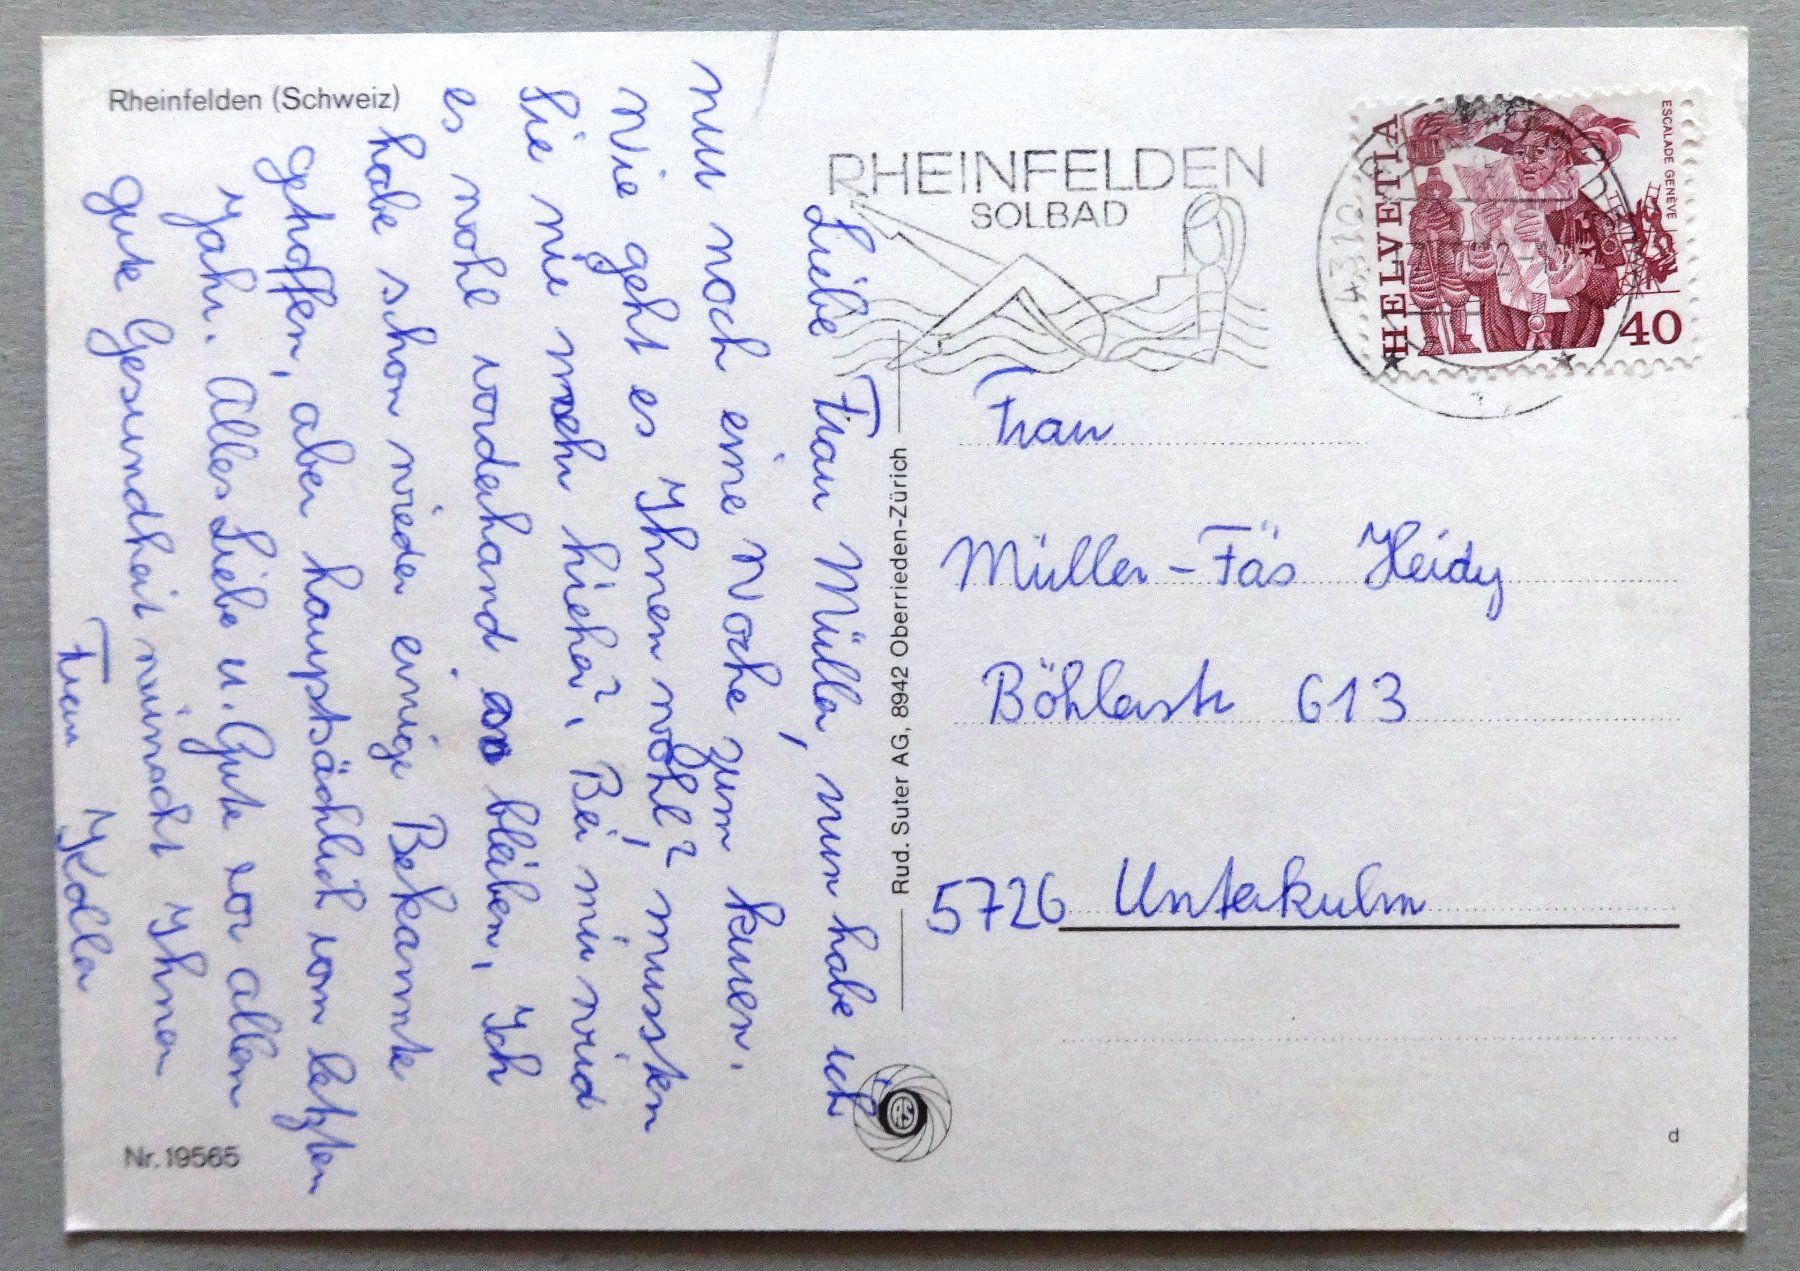 Rheinfelden (Schweiz)
Liebe Frau Müller, nun habe ich
nur noch eine Woche zum kuren.
Wie geht es Ihnen wohl? mussten
Sie nie mehr hieher? Bei mir wird
es wohl vorderhand so bleiben, Ich
habe schon wieder einige Bekannte
getroffen, aber hauptsächlich vom letzten
Jahr. Alles Liebe u. Gute vor allem
gute Gesundheit wünscht Ihnen
Frau Kolla
Nr. 19565
Rud. Suter AG, 8942 Oberrieden-Zürich
RHEINFELDEN
SOLBAD
HELVETIA
ESCALADE GENÈVE
40
4310
Frau
Müller-Fäs Heidy
Böhlerstr 613
5726 Unterkulm
d